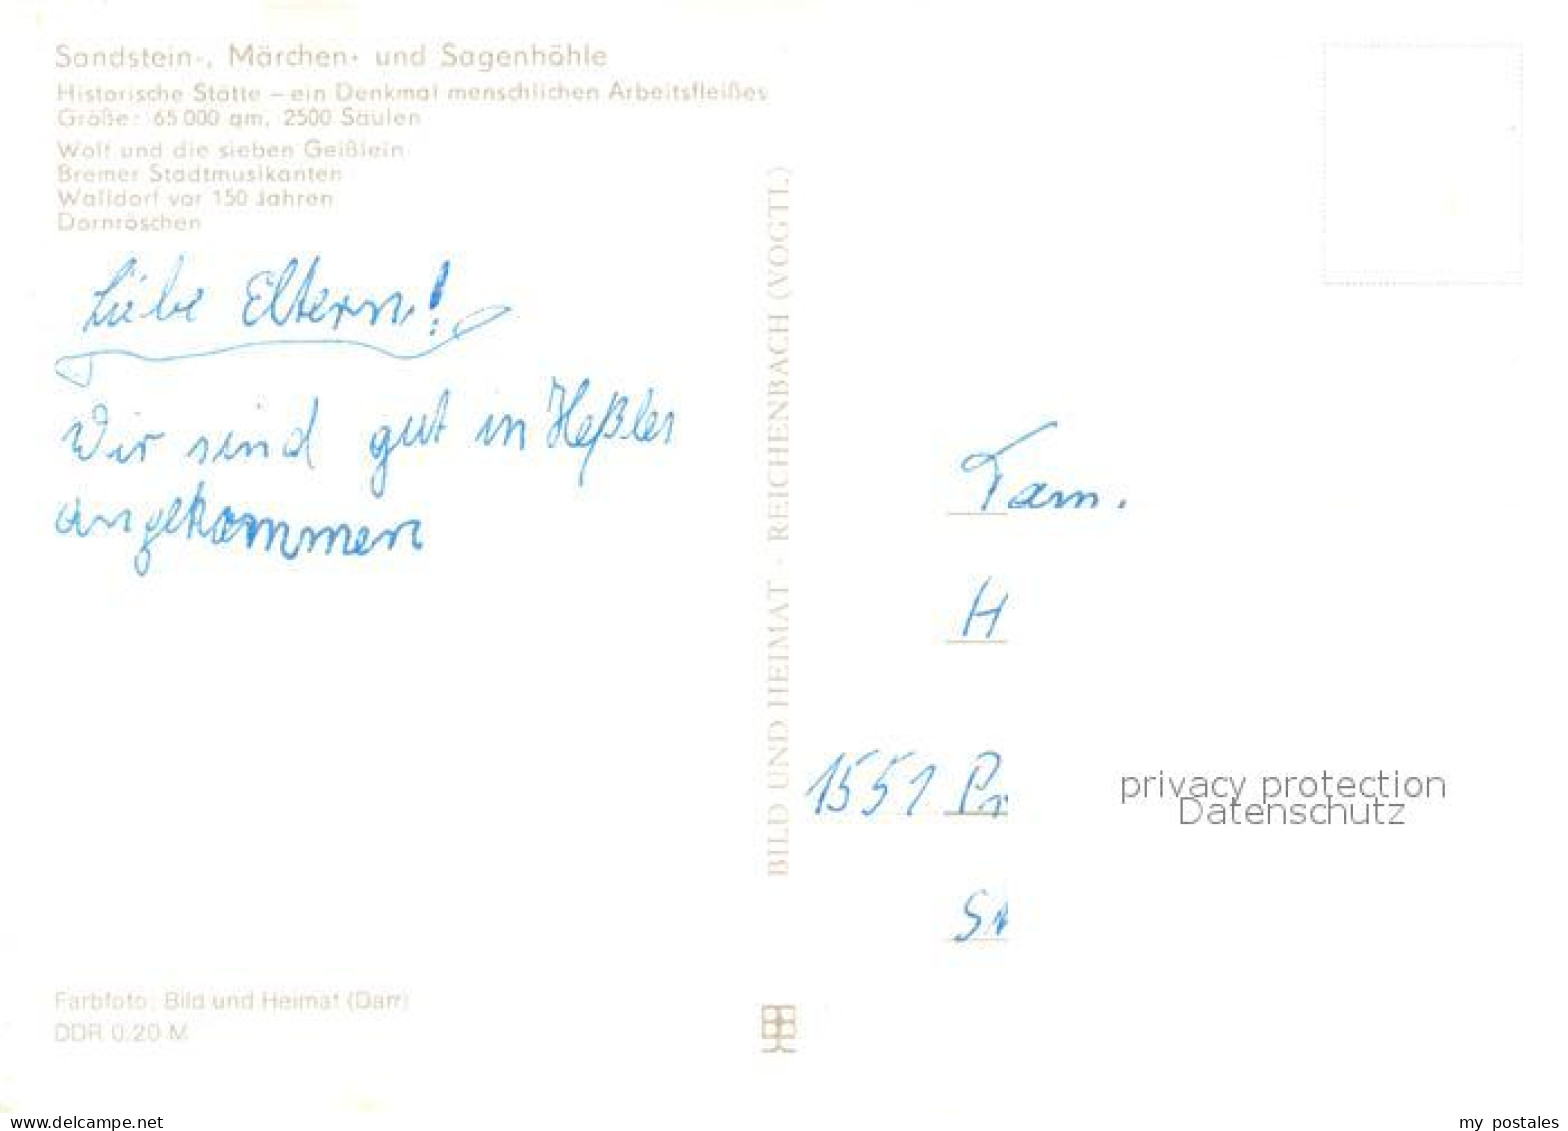 Sandstein-, Märchen- und Sagenhöhle
Historische Stätte – ein Denkmal menschlichen Arbeitsfleißes
Größe: 65 000 qm, 2500 Säulen
Wolf und die sieben Geißlein
Bremer Stadtmusikanten
Walldorf vor 150 Jahren
Dornröschen
Liebe Eltern!
Wir sind gut in Heßles
angekommen
Farbfoto: Bild und Heimat (Darr)
DDR 0,20 M
BILD UND HEIMAT · REICHENBACH (VOGTL.)
Fam.
H
1551 Pr
privacy protection
Datenschutz
www.delcampe.net
my_postales